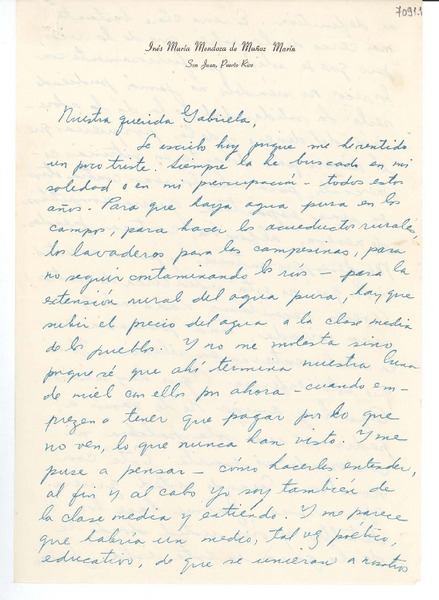 7091.1
Inés María Mendoza de Muñoz Marín
San Juan, Puerto Rico
Nuestra querida Gabriela,
Le escribo hoy porque me he sentido
un poco triste. Siempre la he buscado en mi
soledad o en mi preocupación - todos estos
años. Para que haya agua pura en los
campos, para hacer los acueductos rurales
los lavaderos para las campesinas, para
no seguir contaminando los ríos - para la
extensión rural del agua pura, hay que
subir el precio del agua a la clase media
de los pueblos. Y no me molesta sino
porque sé que ahí termina nuestra luna
de miel con ellos por ahora - cuando em-
piezen a tener que pagar por lo que
no ven, lo que nunca han visto. Y me
puse a pensar - cómo hacerles entender,
al fin y al cabo yo soy también de
la clase media y entiendo. Y me parece
que habría un medio, tal vez poético,
educativo, de que se unieran a nosotros